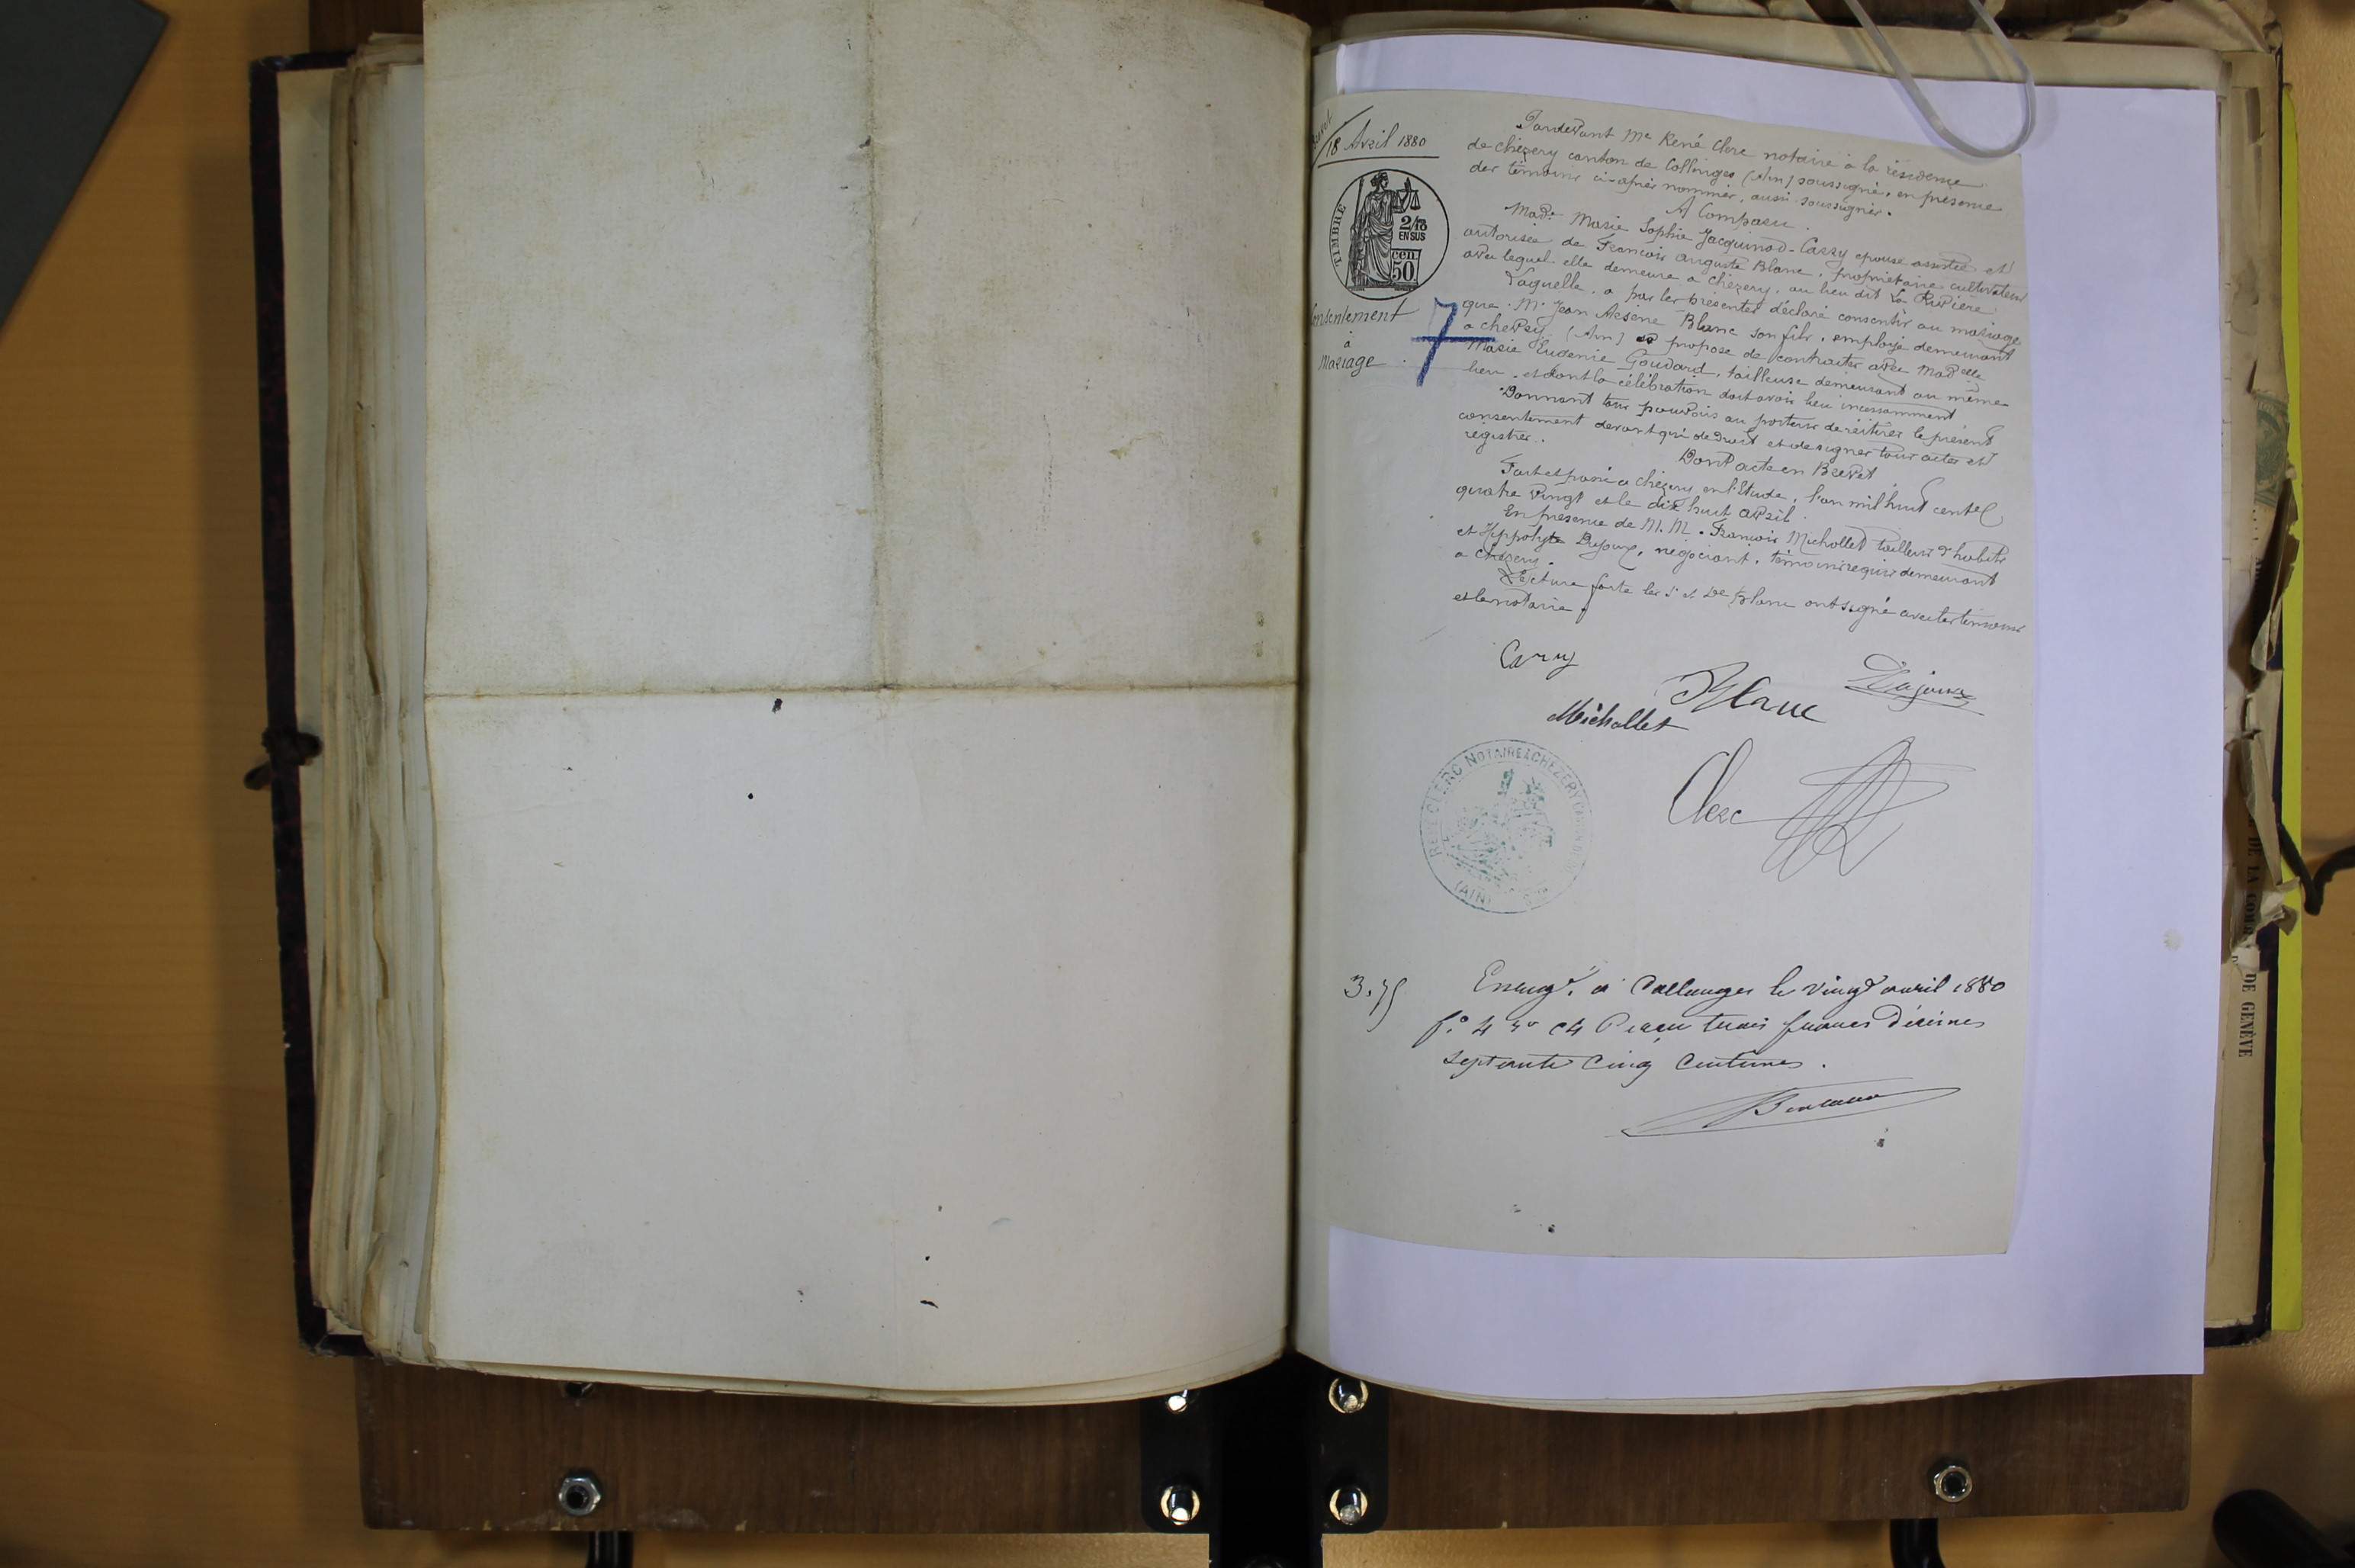 Brevet
18 Avril 1880
TIMBRE
2/10
EN SUS
cen.
50
Consentement
à
Mariage
7
Pardevant Me René Clerc notaire à la résidence
de chézery canton de Collonges (Ain) soussigné, en présence
des témoins ci-après nommés, aussi soussignés.
A Comparu.
Made Marie Sophie Jacquinod-Carry epouse assistée et
autorisée de François Auguste Blanc, propriétaire cultivateur
avec lequel elle demeure a chézery, au lieu dit La Rivière
Laquelle a par les présentes déclaré consentir au mariage
que M. Jean Arsène Blanc son fils, employé demeurant
a chevry (Ain) se propose de contracter avec Madelle
Marie Eugenie Goudard, tailleuse demeurant au même
lieu, et dont la célébration doit avoir lieu incessamment
Donnant tous pouvoirs au porteur de réitérer le présent
consentement devant qui de droit et de signer tous actes et
registres.
Dont acte en Brevet
Fait et passé a chézery en l'Etude, l'an mil huit cent
quatre vingt et le dix huit avril.
En présence de M.M. François Michollet tailleur d'habits
et Hippolyte Dujoux, négociant, témoins requis demeurant
a chézery.
Lecture faite les Sr et De Blanc ont signé avec les témoins
et le notaire.
Carry
Blanc
Dujoux
Michollet
RENÉ CLERC NOTAIRE À CHEZERY
(AIN)
Clerc
3.75
Enregé. à Collonges le vingt avril 1880
f.° 4 ro c4 Perçu trois francs Décimes
septante cinq centimes.
DE LA COUR
DE GENÈVE